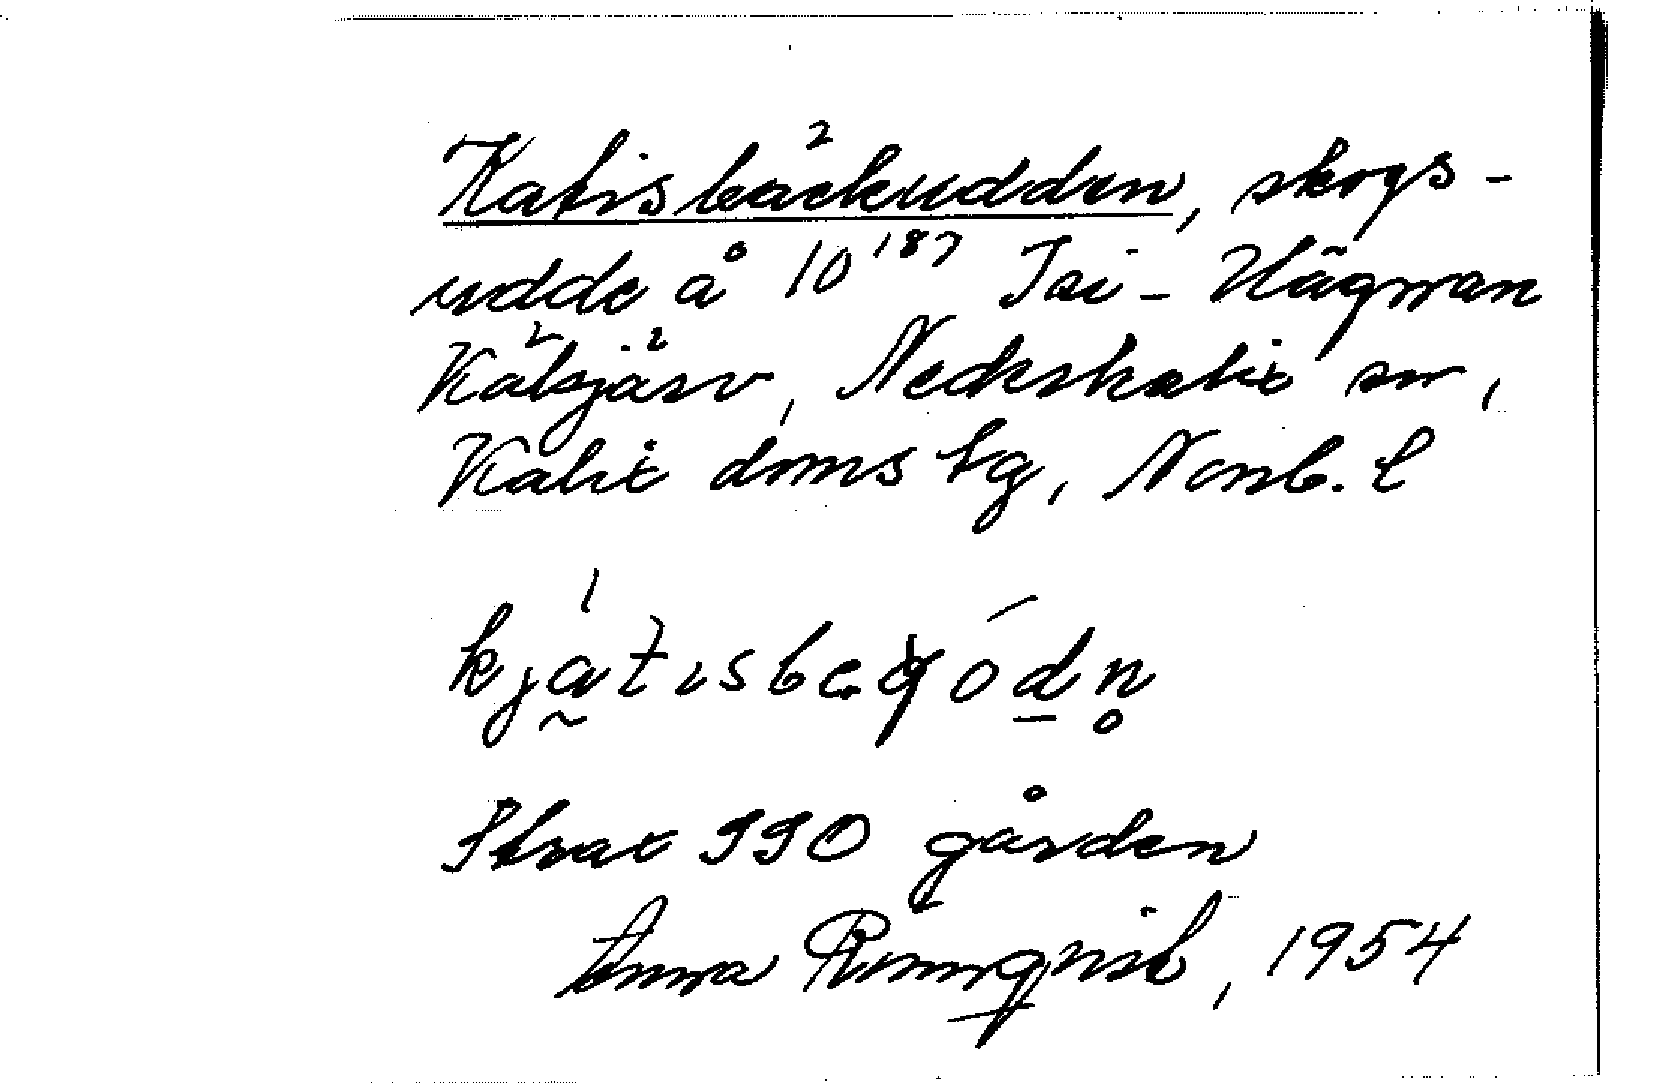 Katisbäckudden, skogs-
udde å 10¹⁸⁷ Isi-Hägnan
Kälsjärv, Nederkalix sn,
Kalix doms tg, Norrb. l
kjatısbeqódn
Strax SSO gården
Anna Rönnqvist, 1954